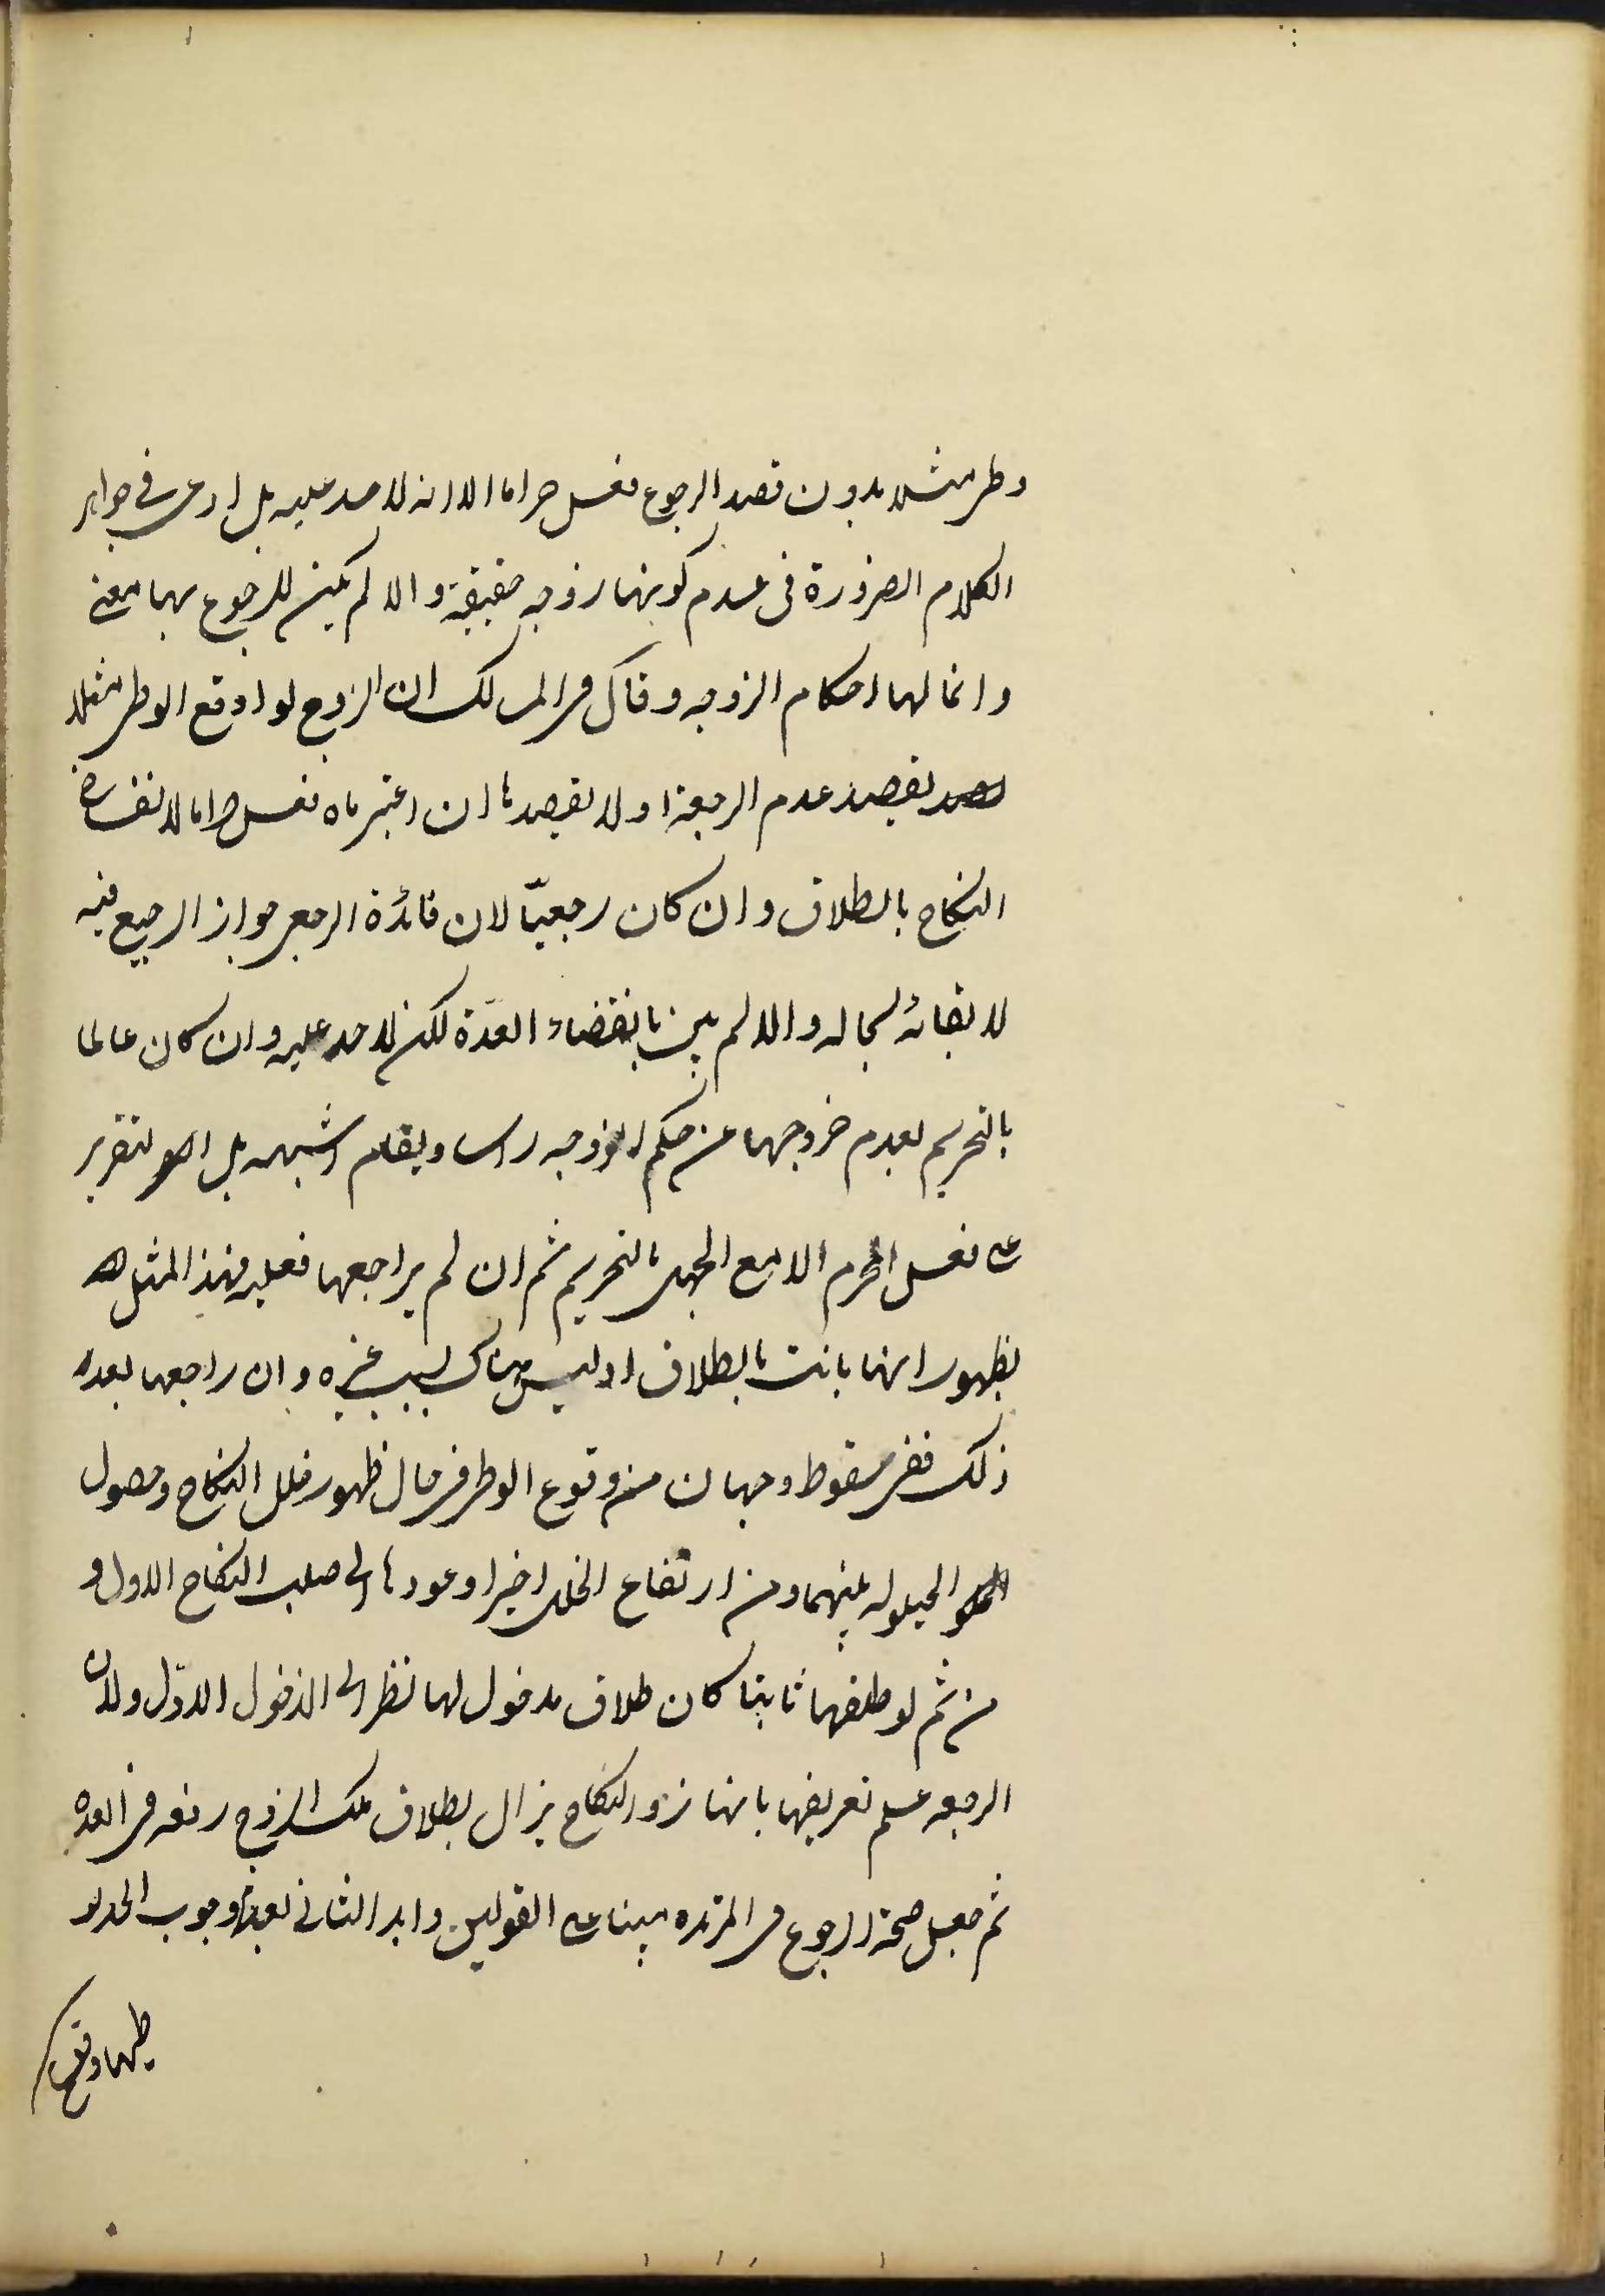 وطى مثلا بدون قصد الرجوع فعل حراما الا انه لا حد عليه بل ادعى في جواهر
الكلام الضرورة فى عدم كونها زوجه حقيقة و الا لم يكن للرجوع بها معنى
و انما لها احكام الزوجه و قال فى المسالك ان الزوج لو اوقع الوطى مثلا
بقصد عدم الرجعة او لا بقصدها ان اعتبرناه فعل حراما لانفساخ
النكاح بالطلاق و ان كان رجعيّا لان فائدة الرجعى جواز الرجوع فيه
لا بقائه بحاله و الا لم تبن بانقضاء العدّة لكن لا حد عليه و ان كان عالما
بالتحريم لعدم خروجها عن حكم الزوجه راسا و لقيام الشبهه بل التعزير
على فعل المحرم الا مع الجهل بالتحريم ثم ان لم يراجعها فعليه مهر المثل
لظهور انها بانت بالطلاق اذ ليس هناك سبب غيره و ان راجعها بعد
ذلك ففى سقوطه وجهان من وقوع الوطى فى حال ظهور خلل النكاح و حصول
الحيلوله بينهما و من ارتفاع الخلل اخيرا و عودها الى صلب النكاح الاول و
من ثم لو طلقها ثانيا كان طلاق مدخول بها نظر الى الدخول الاوّل و لان
الرجعه علم تعريفها بانها رد النكاح يزال بطلاق يملك الزوج رفعه فى العده
ثم جعل صحة الرجوع فى المرتده مبينا على القولين و ايد الثانى بعدم وجوب الحد لو
وطيها و قع